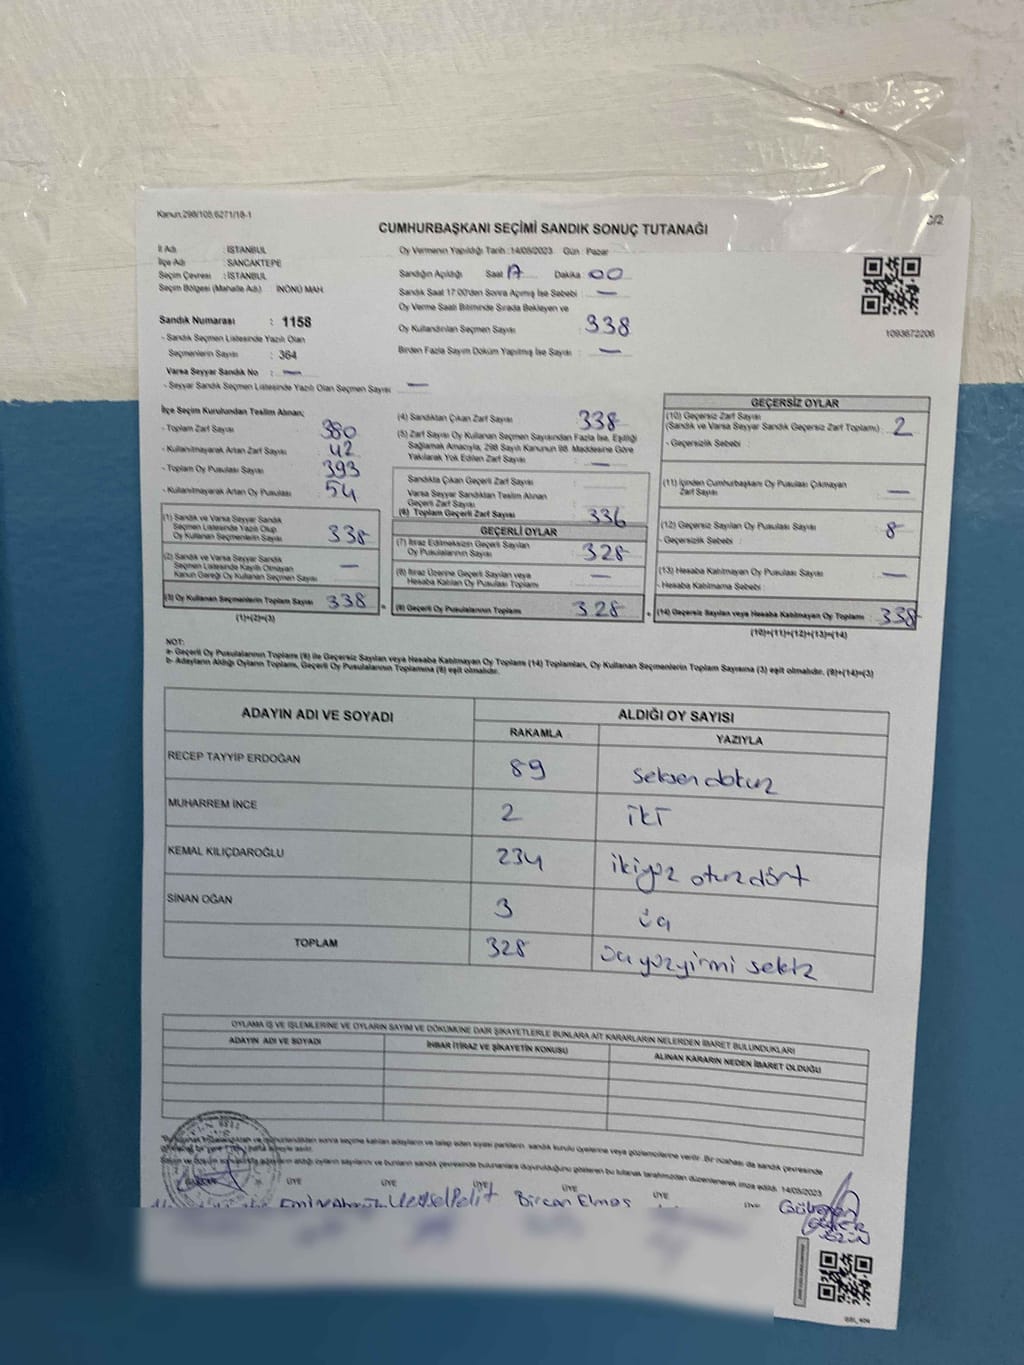 Kanun.298/105,6271/18-1
C/2
CUMHURBAŞKANI SEÇİMİ SANDIK SONUÇ TUTANAĞI
İl Adı : İSTANBUL
İlçe Adı : SANCAKTEPE
Seçim Çevresi : İSTANBUL
Seçim Bölgesi (Mahalle Adı) : İNÖNÜ MAH.
Oy Vermenin Yapıldığı Tarih :14/05/2023 Gün : Pazar
Sandığın Açıldığı Saat 17 Dakika : 00
Sandık Saat 17:00'den Sonra Açılmış İse Sebebi : —
Oy Verme Saati Bitiminde Sırada Bekleyen ve
Oy Kullandırılan Seçmen Sayısı : 338
Birden Fazla Sayım Döküm Yapılmış İse Sayısı : —
1093672206
Sandık Numarası : 1158
- Sandık Seçmen Listesinde Yazılı Olan
Seçmenlerin Sayısı : 364
Varsa Seyyar Sandık No : —
- Seyyar Sandık Seçmen Listesinde Yazılı Olan Seçmen Sayısı : —
İlçe Seçim Kurulundan Teslim Alınan;
- Toplam Zarf Sayısı 380
- Kullanılmayarak Artan Zarf Sayısı : 42
- Toplam Oy Pusulası Sayısı 393
- Kullanılmayarak Artan Oy Pusulası 54
(1) Sandık ve Varsa Seyyar Sandık
Seçmen Listesinde Yazılı Olup
Oy Kullanan Seçmenlerin Sayısı 338
(2) Sandık ve Varsa Seyyar Sandık
Seçmen Listesinde Kayıtlı Olmayan
Kanun Gereği Oy Kullanan Seçmen Sayısı —
(3) Oy Kullanan Seçmenlerin Toplam Sayısı 338
(1)+(2)=(3)
(4) Sandıktan Çıkan Zarf Sayısı 338
(5) Zarf Sayısı Oy Kullanan Seçmen Sayısından Fazla İse, Eşitliği
Sağlamak Amacıyla, 298 Sayılı Kanunun 98. Maddesine Göre
Yakılarak Yok Edilen Zarf Sayısı : —
Sandıkta Çıkan Geçerli Zarf Sayısı
Varsa Seyyar Sandıktan Teslim Alınan
Geçerli Zarf Sayısı
(6) Toplam Geçerli Zarf Sayısı 336
GEÇERLİ OYLAR
(7) İtiraz Edilmeksizin Geçerli Sayılan
Oy Pusulalarının Sayısı 328
(8) İtiraz Üzerine Geçerli Sayılan veya
Hesaba Katılan Oy Pusulası Toplamı : —
(9) Geçerli Oy Pusulalarının Toplamı 328
GEÇERSİZ OYLAR
(10) Geçersiz Zarf Sayısı
(Sandık ve Varsa Seyyar Sandık Geçersiz Zarf Toplamı) : 2
- Geçersizlik Sebebi :
(11) İçinden Cumhurbaşkanı Oy Pusulası Çıkmayan
Zarf Sayısı —
(12) Geçersiz Sayılan Oy Pusulası Sayısı : 8
- Geçersizlik Sebebi :
(13) Hesaba Katılmayan Oy Pusulası Sayısı : —
- Hesaba Katılmama Sebebi :
(14) Geçersiz Sayılan veya Hesaba Katılmayan Oy Toplamı : 338
(10)+(11)+(12)+(13)=(14)
NOT:
a- Geçerli Oy Pusulalarının Toplamı (9) ile Geçersiz Sayılan veya Hesaba Katılmayan Oy Toplamı (14) Toplamları, Oy Kullanan Seçmenlerin Toplam Sayısına (3) eşit olmalıdır. (9)+(14)=(3)
b- Adayların Aldığı Oyların Toplamı, Geçerli Oy Pusulalarının Toplamına (9) eşit olmalıdır.
ADAYIN ADI VE SOYADI ALDIĞI OY SAYISI
RAKAMLA YAZIYLA
RECEP TAYYİP ERDOĞAN 89 seksen dokuz
MUHARREM İNCE 2 iki
KEMAL KILIÇDAROĞLU 234 ikiyüz otuzdört
SİNAN OĞAN 3 üç
TOPLAM 328 üçyüzyirmi sekiz
OYLAMA İŞ VE İŞLEMLERİNE VE OYLARIN SAYIM VE DÖKÜMÜNE DAİR ŞİKAYETLERLE BUNLARA AİT KARARLARIN NELERDEN İBARET BULUNDUKLARI
ADAYIN ADI VE SOYADI İHBAR İTİRAZ VE ŞİKAYETİN KONUSU ALINAN KARARIN NEDEN İBARET OLDUĞU
sonra seçime katılan adayların ve talep eden siyasi partilerin sandık kurulu üyelerine veya gözlemcilerine verilir. Bir nüshası da sandık çevresinde
aldığı oyların sayılarını ve bunların sandık çevresinde bulunanlara duyurulduğunu gösteren bu tutanak tarafımızdan düzenlenerek imza edildi. 14/05/2023
ÜYE ÜYE ÜYE ÜYE ÜYE ÜYE
Veysel Polit Bircan Elmas